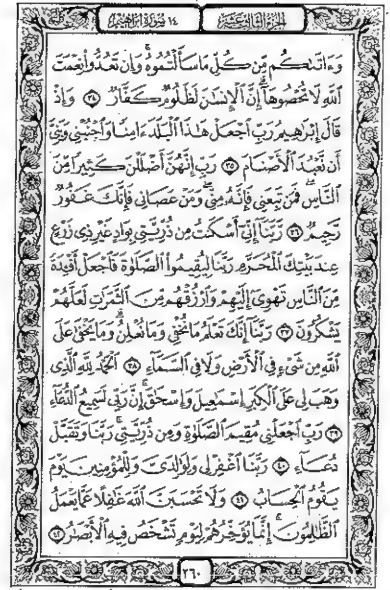 الجزء الثالث عشر ١٤ سورة إبراهيم
وَءَاتَىٰكُم مِّن كُلِّ مَا سَأَلْتُمُوهُ ۚ وَإِن تَعُدُّوا۟ نِعْمَتَ
ٱللَّهِ لَا تُحْصُوهَآ ۗ إِنَّ ٱلْإِنسَٰنَ لَظَلُومٌ كَفَّارٌ ٣٤ وَإِذْ
قَالَ إِبْرَٰهِيمُ رَبِّ ٱجْعَلْ هَٰذَا ٱلْبَلَدَ ءَامِنًا وَٱجْنُبْنِى وَبَنِىَّ
أَن نَّعْبُدَ ٱلْأَصْنَامَ ٣٥ رَبِّ إِنَّهُنَّ أَضْلَلْنَ كَثِيرًا مِّنَ
ٱلنَّاسِ ۖ فَمَن تَبِعَنِى فَإِنَّهُۥ مِنِّى ۖ وَمَنْ عَصَانِى فَإِنَّكَ غَفُورٌ
رَّحِيمٌ ٣٦ رَّبَّنَآ إِنِّىٓ أَسْكَنتُ مِن ذُرِّيَّتِى بِوَادٍ غَيْرِ ذِى زَرْعٍ
عِندَ بَيْتِكَ ٱلْمُحَرَّمِ رَبَّنَا لِيُقِيمُوا۟ ٱلصَّلَوٰةَ فَٱجْعَلْ أَفْـِٔدَةً
مِّنَ ٱلنَّاسِ تَهْوِىٓ إِلَيْهِمْ وَٱرْزُقْهُم مِّنَ ٱلثَّمَرَٰتِ لَعَلَّهُمْ
يَشْكُرُونَ ٣٧ رَبَّنَآ إِنَّكَ تَعْلَمُ مَا نُخْفِى وَمَا نُعْلِنُ ۗ وَمَا يَخْفَىٰ عَلَى
ٱللَّهِ مِن شَىْءٍ فِى ٱلْأَرْضِ وَلَا فِى ٱلسَّمَآءِ ٣٨ ٱلْحَمْدُ لِلَّهِ ٱلَّذِى
وَهَبَ لِى عَلَى ٱلْكِبَرِ إِسْمَٰعِيلَ وَإِسْحَٰقَ ۚ إِنَّ رَبِّى لَسَمِيعُ ٱلدُّعَآءِ
٣٩ رَبِّ ٱجْعَلْنِى مُقِيمَ ٱلصَّلَوٰةِ وَمِن ذُرِّيَّتِى ۚ رَبَّنَا وَتَقَبَّلْ
دُعَآءِ ٤٠ رَبَّنَا ٱغْفِرْ لِى وَلِوَٰلِدَىَّ وَلِلْمُؤْمِنِينَ يَوْمَ
يَقُومُ ٱلْحِسَابُ ٤١ وَلَا تَحْسَبَنَّ ٱللَّهَ غَٰفِلًا عَمَّا يَعْمَلُ
ٱلظَّٰلِمُونَ ۚ إِنَّمَا يُؤَخِّرُهُمْ لِيَوْمٍ تَشْخَصُ فِيهِ ٱلْأَبْصَٰرُ ٤٢
٢٦٠